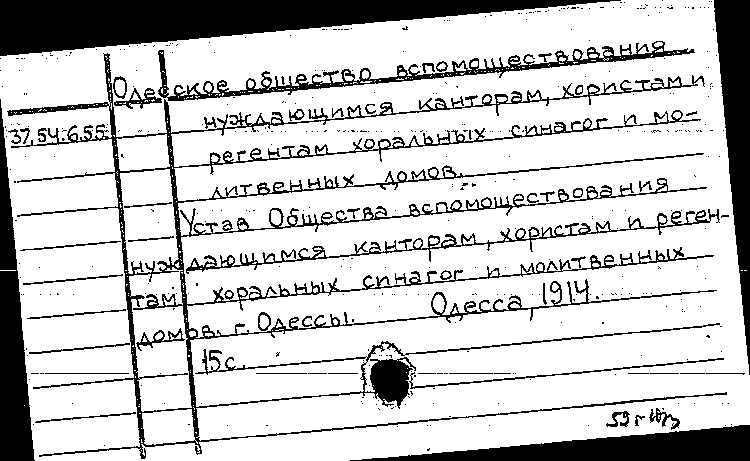 Одесское общество вспомоществования
нуждающимся канторам, хористам и
37.54.6.55.
регентам хоральных синагог и мо-
литвенных домов.
Устав Общества вспомоществования
нуждающимся канторам, хористам и реген-
там хоральных синагог и молитвенных
домов. г. Одессы. Одесса, 1914.
15 с.